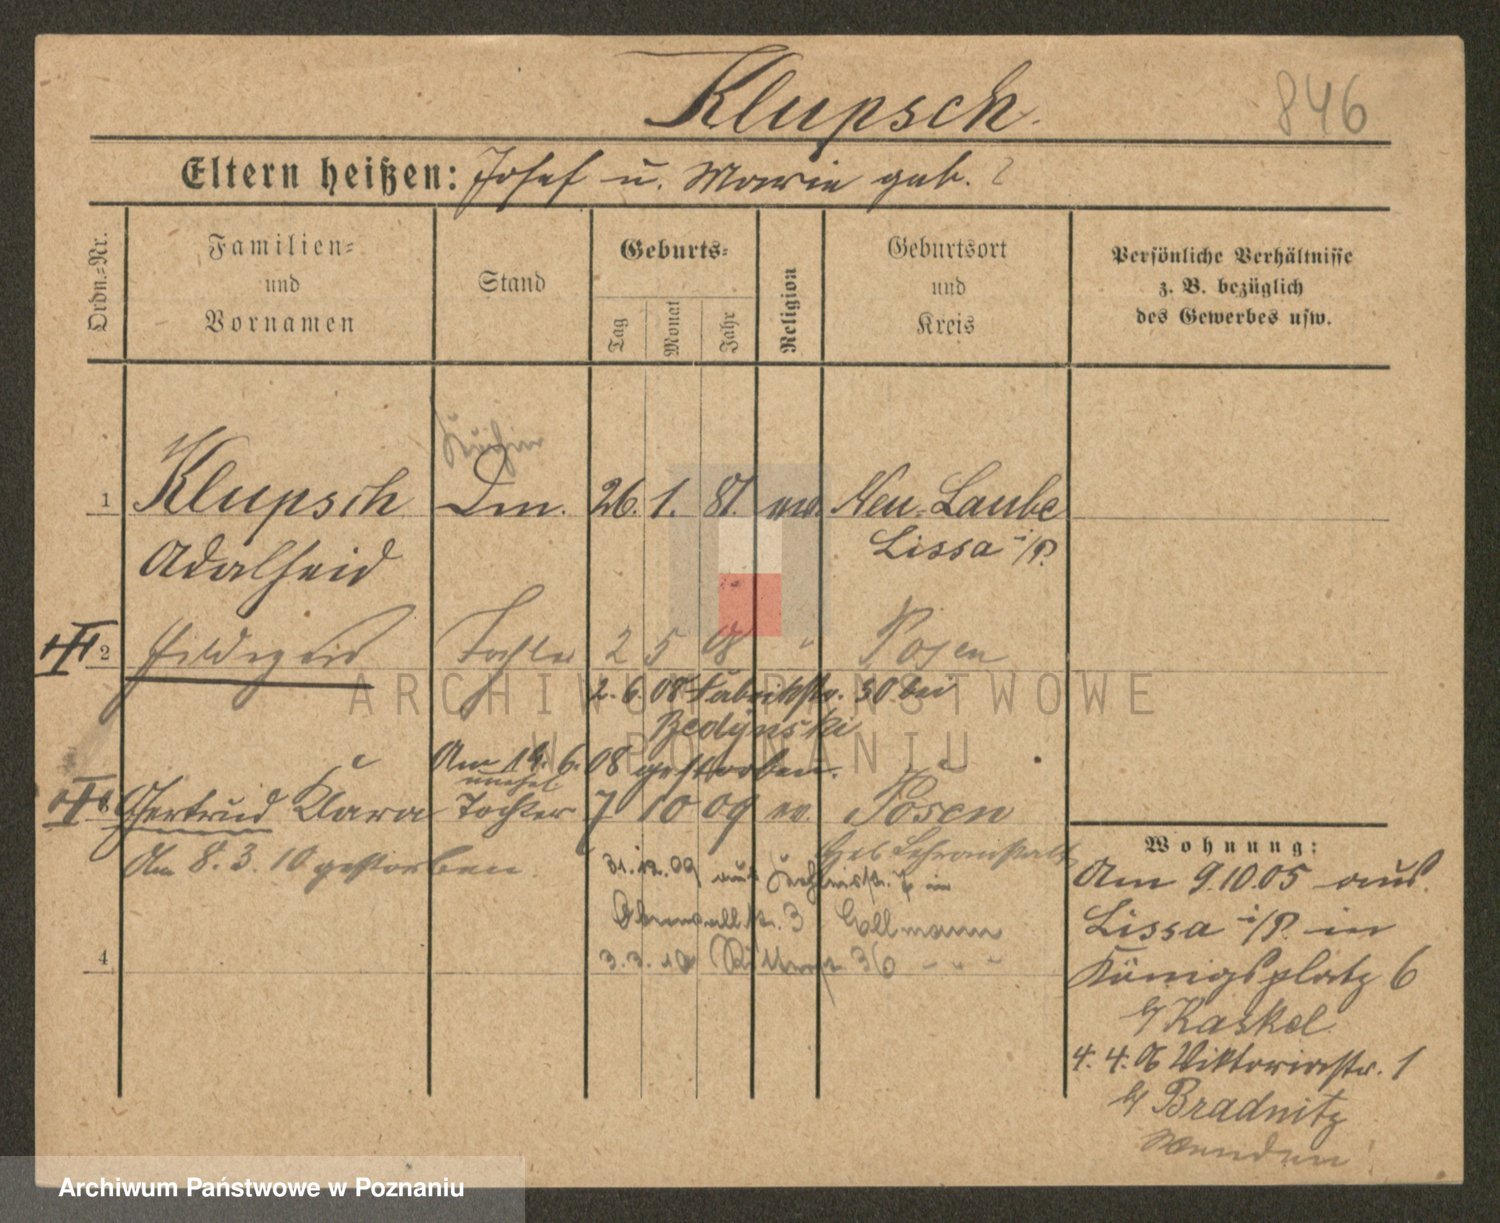 Klupsch.
846
Eltern heißen: Josef u. Marie geb. ?
Ordn.-Nr.
Familien-
und
Vornamen
Stand
Geburts-
Tag
Monat
Jahr
Religion
Geburtsort
und
Kreis
Persönliche Verhältnisse
z. B. bezüglich
des Gewerbes usw.
Köchin
1 Klupsch Dm. 26. 1. 81. ev. Neu-Laube
Adalheid Lissa i/P.
2 Hildegard Tochter 2 5 08 " Posen
2. 6. 08 Fabrikstr. 30 bei
Zedynski
Am 14. 6. 08 gestorben.
unehel
Gertrud Klara Tochter 7 10 09 ev. Posen
Am 8. 3. 10 gestorben.
Heb Lehranstalt
31. 12. 09 aus im
3 Collmann
4
3. 3. 10 Ritterstr 36 " " "
Wohnung:
Am 9.10.05 aus
Lissa i/P. in
Königsplatz 6
b/ Kaskel
4. 4. 06 Viktoriastr. 1
b/ Bradnitz
Wenden!
ARCHIWUM PAŃSTWOWE
W POZNANIU
Archiwum Państwowe w Poznaniu